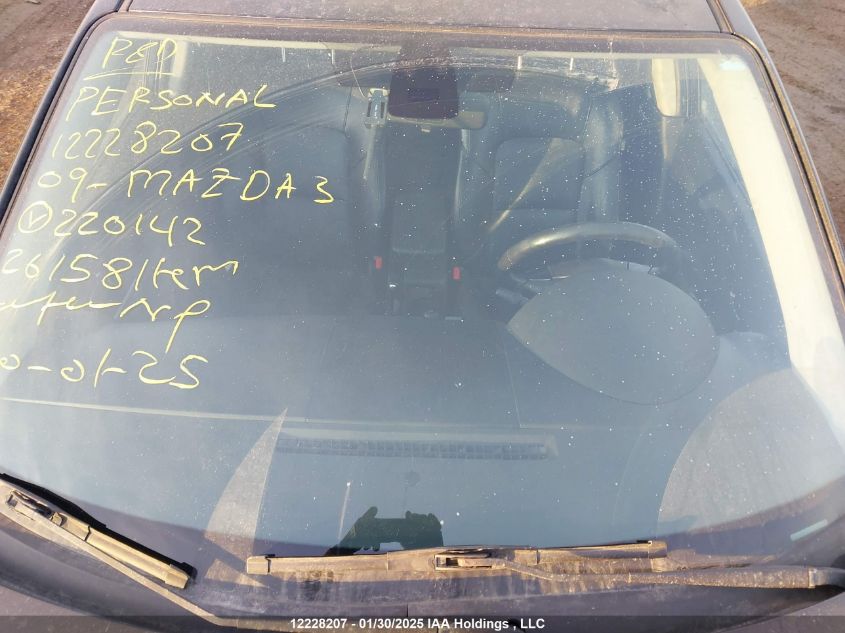 RED
PERSONAL
12228207
09-MAZDA3
V 220142
261581km
0-01-25
12228207 - 01/30/2025 IAA Holdings , LLC